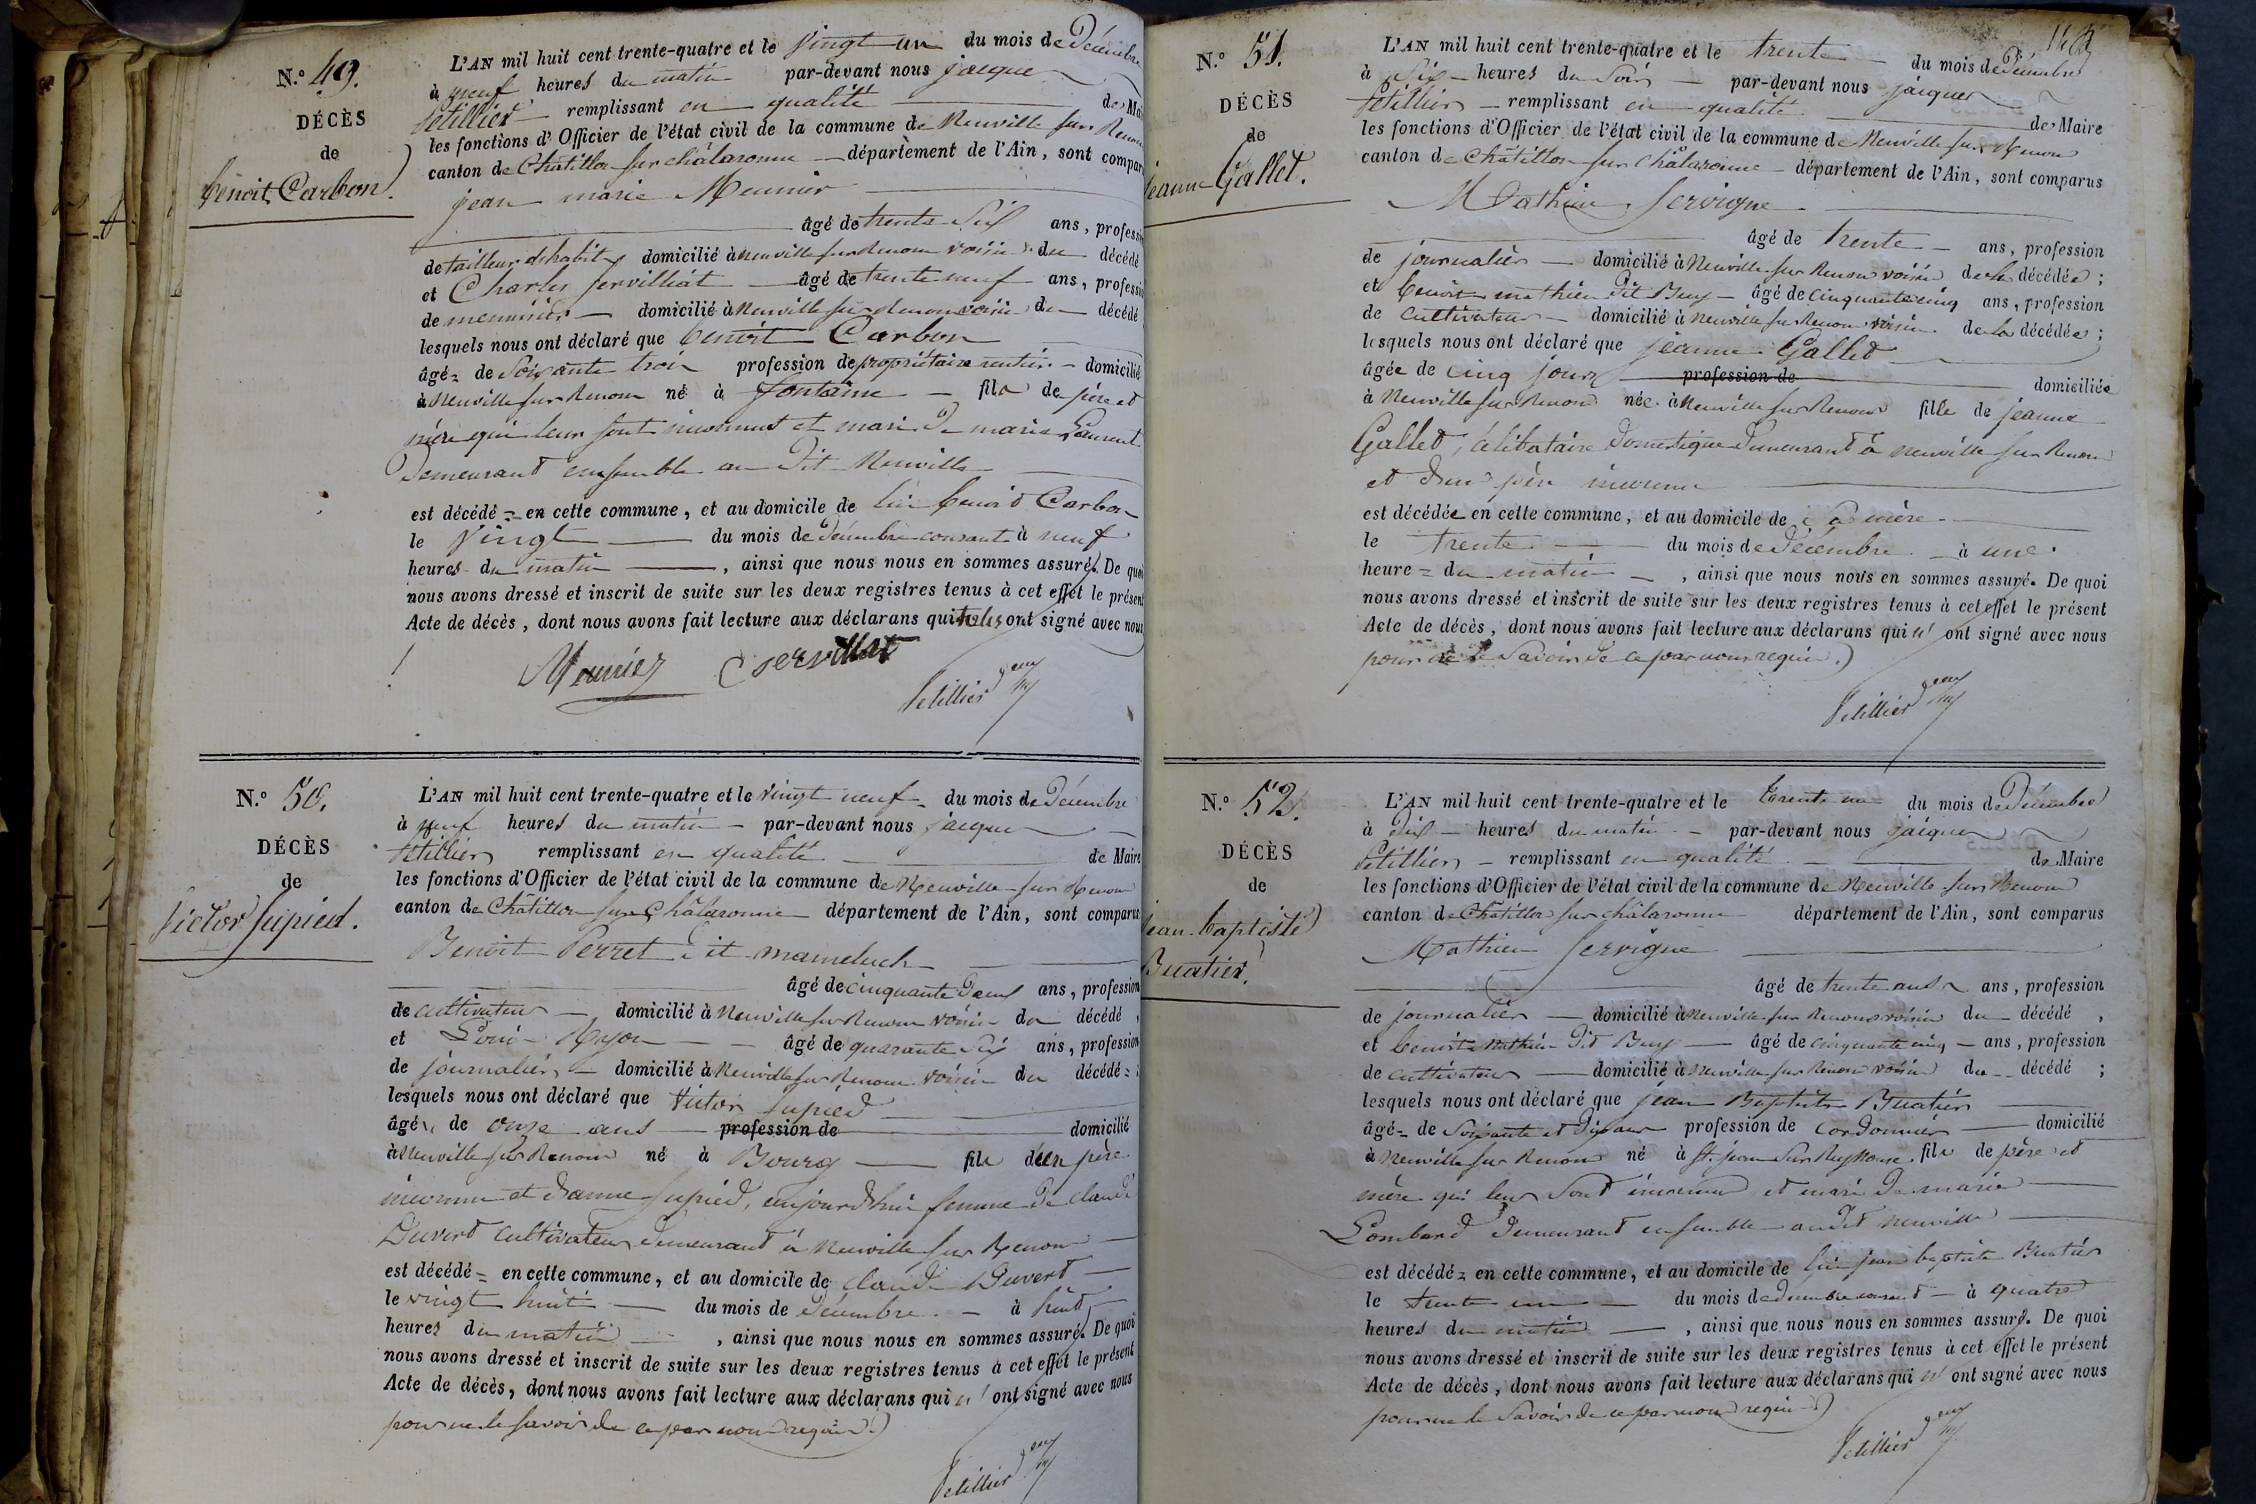 N.° 49.
DÉCÈS
de
benoit Carbon.
L'AN mil huit cent trente-quatre et le vingt un du mois de Décembre
à neuf heures du matin par-devant nous jacque
Petillier remplissant en qualité de Mai
les fonctions d'Officier de l'état civil de la commune de Neuville sur Renom
canton de Châtillon sur châlaronne département de l'Ain, sont compar
jean marie Meunier
âgé de trente Six ans, professi
de tailleur d'habits domicilié à neuville sur Renom voisin du décédé
et Charles servilliat âgé de trente neuf ans, professi
de menuisier domicilié à Neuville sur Renom voisin du décédé
lesquels nous ont déclaré que benoit Carbon
âgé de Soixante trois profession de propriétaire rentier domicilié
à Neuville sur Renom né à fontaine fils de père et
mère qui leur sont inconnus et mari de marie Laurent
Demeurant ensemble au dit Neuville
est décédé en cette commune, et au domicile de lui benoit Carbon
le Vingt du mois de décembre courant à neuf
heures du matin , ainsi que nous nous en sommes assuré. De quoi
nous avons dressé et inscrit de suite sur les deux registres tenus à cet effet le présent
Acte de décès, dont nous avons fait lecture aux déclarans qui ont signé avec nous
Meunier C servillat
Petillier
N.° 50.
DÉCÈS
de
Victor Supied.
L'AN mil huit cent trente-quatre et le vingt neuf du mois de Décembre
à neuf heures du matin par-devant nous jacque
Petillier remplissant en qualité de Maire
les fonctions d'Officier de l'état civil de la commune de Neuville sur Renom
canton de Châtillon sur Châlaronne département de l'Ain, sont comparus
Benoit Perret dit mameluck
âgé de cinquante deux ans, profession
de cultivateur domicilié à Neuville sur Renom voisin du décédé ,
et Loui Rejon âgé de quarante Six ans, profession
de journalier domicilié à Neuville sur Renom voisin du décédé :
lesquels nous ont déclaré que Victor Supied
âgé de onze ans profession de domicilié
à Neuville sur Renom né à Bourg fils d'un père
inconnu et d'anne Supied, aujourd'hui femme de claude
Buvert cultivateur demeurant à Neuville sur Renom
est décédé en cette commune, et au domicile de claude Buvert
le vingt huit du mois de décembre à huit
heures du matin , ainsi que nous nous en sommes assuré. De quoi
nous avons dressé et inscrit de suite sur les deux registres tenus à cet effet le présent
Acte de décès, dont nous avons fait lecture aux déclarans qui n' ont signé avec nous
pour ne le savoir de ce par nous requis.)
Petillier
N.° 51.
DÉCÈS
de
jeanne Gallet.
L'AN mil huit cent trente-quatre et le trente du mois de Décembre
à Six heures du Soir par-devant nous jacques
Petillier remplissant en qualité de Maire
les fonctions d'Officier de l'état civil de la commune de Neuville sur Renom
canton de châtillon sur châlaronne département de l'Ain, sont comparus
Mathieu Servigne
âgé de trente ans, profession
de journalier domicilié à Neuville sur Renom voisin de la décédée ;
et benoit mathieu dit Buy âgé de cinquante cinq ans, profession
de cultivateur domicilié à neuville sur Renom voisin de la décédée ;
lesquels nous ont déclaré que jeanne Gallet
âgée de cinq jours profession de domiciliée
à Neuville sur Renom née à Neuville sur Renom fille de jeanne
Gallet, célibataire domestique demeurant à neuville sur Renom
et d'un père inconnu
est décédée en cette commune, et au domicile de Sa mère
le trente du mois de décembre à une
heure du matin , ainsi que nous nous en sommes assuré. De quoi
nous avons dressé et inscrit de suite sur les deux registres tenus à cet effet le présent
Acte de décès, dont nous avons fait lecture aux déclarans qui n' ont signé avec nous
pour ne le Savoir de ce par nous requis.)
Petillier
N.° 52.
DÉCÈS
de
jean-baptiste
Buatier.
L'AN mil huit cent trente-quatre et le trente un du mois de Décembre
à Dix heures du matin par-devant nous jacques
Petillier remplissant en qualité de Maire
les fonctions d'Officier de l'état civil de la commune de Neuville sur Renom
canton de Châtillon sur châlaronne département de l'Ain, sont comparus
Mathieu Servigne
âgé de trente ans ans, profession
de journalier domicilié à Neuville sur Renom voisin du décédé ,
et benoit Mathieu dit Buy âgé de cinquante cinq ans, profession
de cultivateur domicilié à Neuville sur Renom voisin du décédé ;
lesquels nous ont déclaré que jean Baptiste Buatier
âgé de Soixante et dix ans profession de cordonnier domicilié
à Neuville sur Renom né à St. jean Sur Reyssouse fils de père et
mère qui leur Sont inconnus et mari de marie
Lombard demeurant ensemble au dit neuville
est décédé en cette commune, et au domicile de lui jean baptiste Buatier
le trente un du mois de décembre courant à quatre
heures du matin , ainsi que nous nous en sommes assuré. De quoi
nous avons dressé et inscrit de suite sur les deux registres tenus à cet effet le présent
Acte de décès, dont nous avons fait lecture aux déclarans qui n' ont signé avec nous
pour ne le Savoir de ce par nous requis.)
Petillier